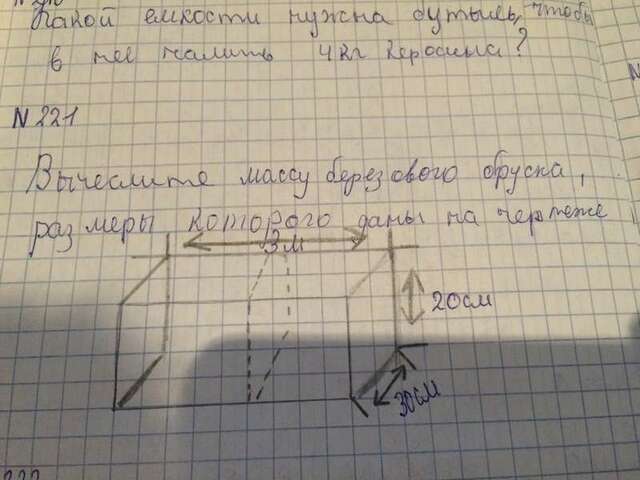 Какой емкости нужна бутыль, чтобы
в нее налить 4 кг керосина?
N 221
Вычеслите массу березового бруска,
размеры которого даны на чертеже
3м
20см
30см